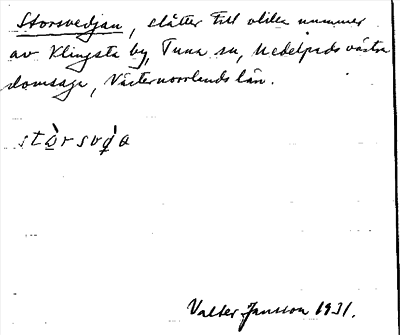 Storsvedjan, slåtter till olika nummer
av Klingsta by, Tuna sn, Medelpads västra
domsaga, Västernorrlands län.
stòrsvd̀a
Valter Jansson 1931.